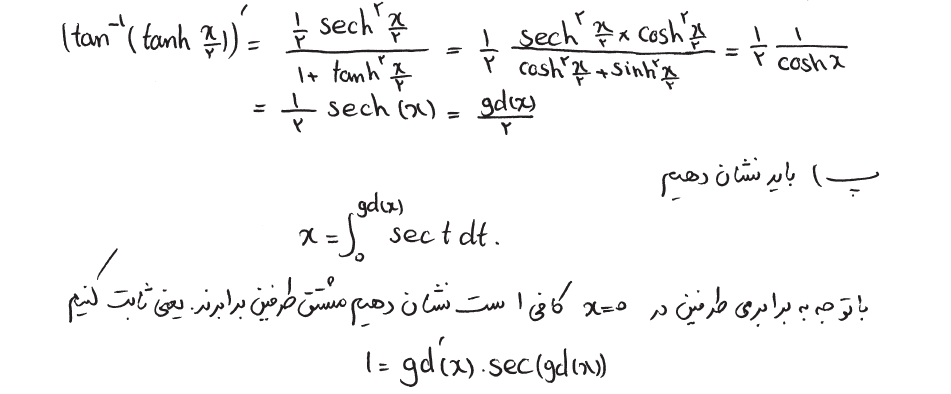 (tan⁻¹(tanh x/۲))′ = (۱/۲ sech^۲ x/۲)/(۱+ tanh^۲ x/۲) = ۱/۲ (sech^۲ x/۲ × cosh^۲ x/۲)/(cosh^۲ x/۲ + sinh^۲ x/۲) = ۱/۲ ۱/(cosh x)
= ۱/۲ sech (x) = gd(x)/۲
پ) باید نشان دهیم
x = ∫₀^gd(x) sec t dt.
با توجه به برابری طرفین در x=۰ کافی است نشان دهیم مشتق طرفین برابرند. یعنی ثابت کنیم
۱ = gd′(x) . sec(gd(x))